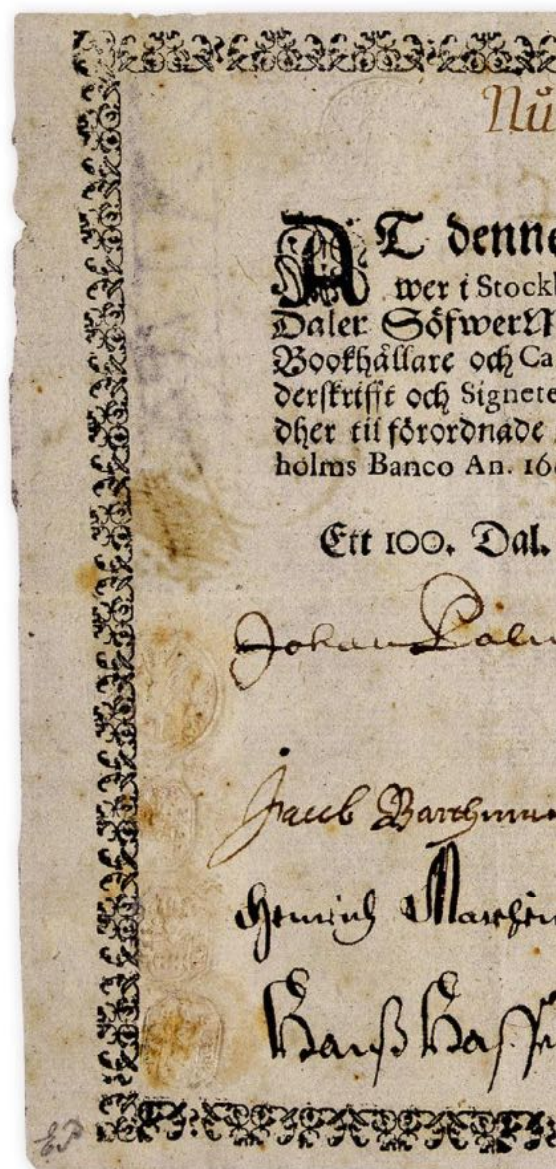 Nů
AT denne
wer i Stockh
Daler SöfwerM
Bookhållare och Ca
derskrifft och Signete
dher til förordnade
holms Banco An. 166
Ett 100. Dal.
Johan Palm
Jacob Barthm
Henrich
Hanß
EP